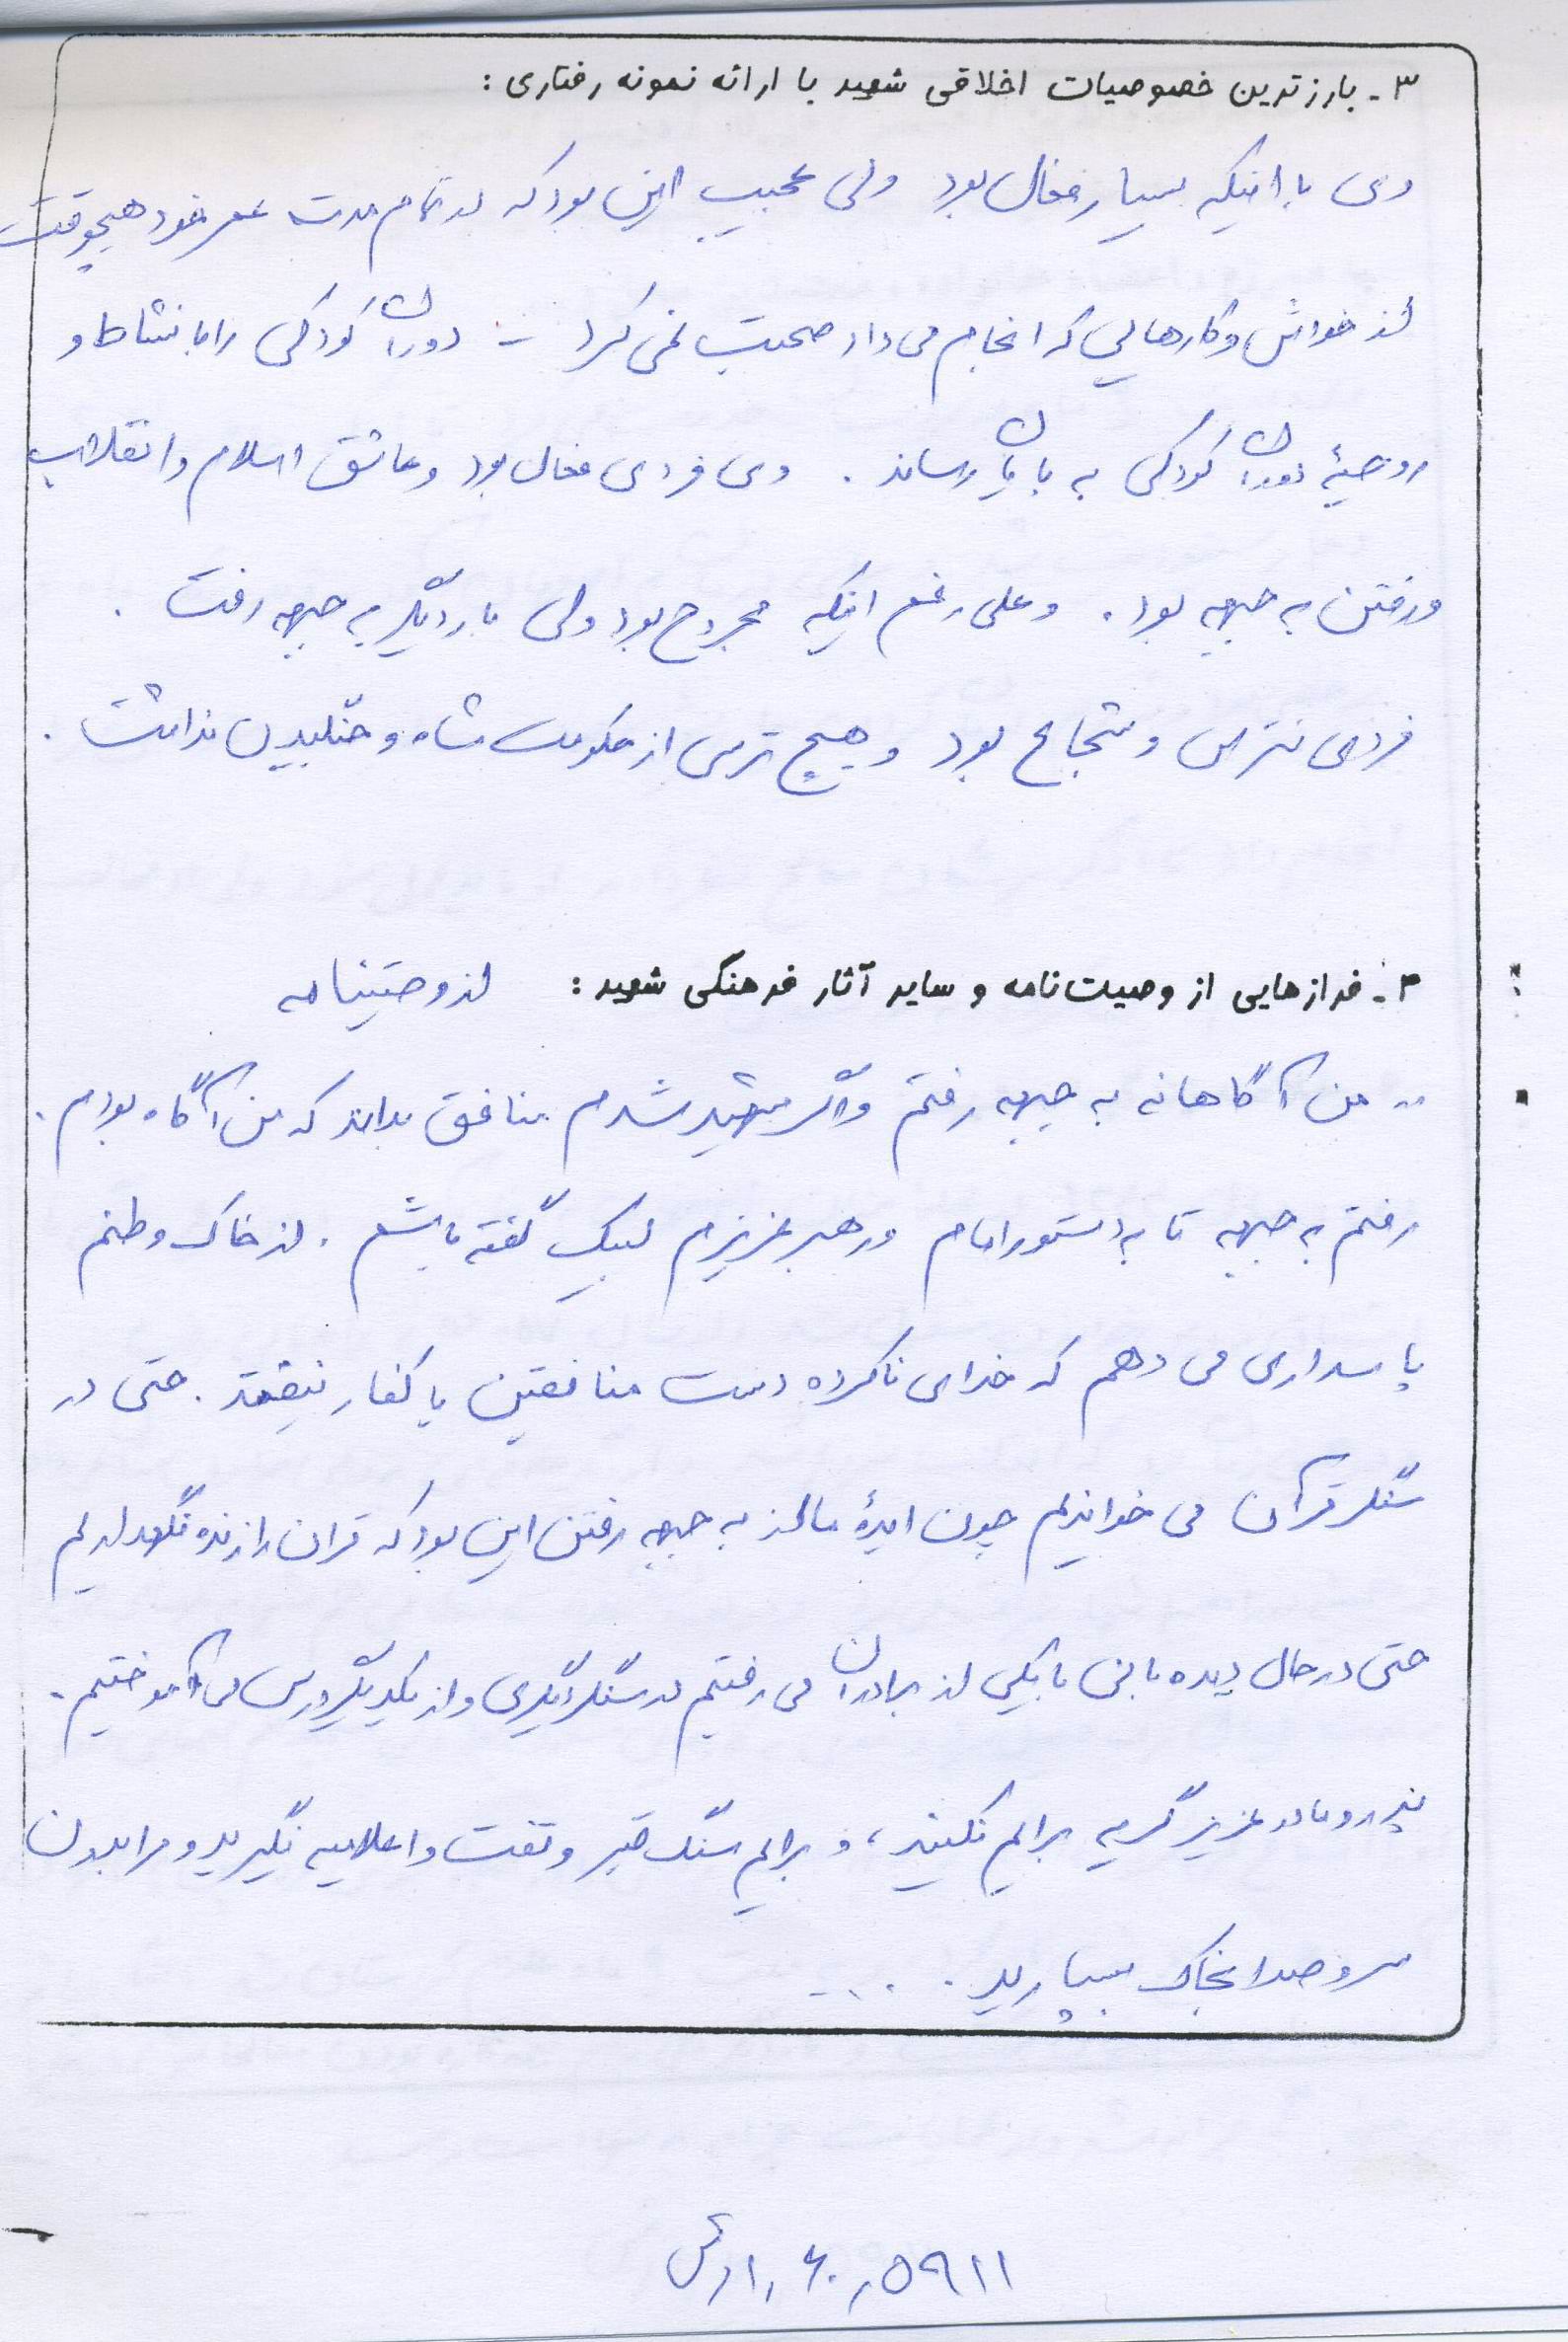 ۳ـ بارزترین خصوصیات اخلاقی شهید با ارائه نمونه رفتاری :
وی با اینکه بسیار فعال بود ولی عجیب این بود که در تمام مدت عمر خود هیچوقت
از خودش و کارهایی که انجام می داد صحبت نمی کرد ـ دوران کودکی را با نشاط و
روحیهٔ دوران کودکی به پایان رساند . وی فردی فعال بود و عاشق اسلام و انقلاب
و رفتن به جبهه بود . و علی رغم اینکه مجروح بود ولی بار دیگر به جبهه رفت .
فردی نترس و شجاع بود و هیچ ترسی از حکومت شاه و جنگیدن نداشت .
۴ـ فرازهایی از وصیت نامه و سایر آثار فرهنگی شهید : از وصیتنامه
.. من آگاهانه به جبهه رفتم و اگر شهید شدم منافق بداند که من آگاه بودم .
رفتم به جبهه تا به دستور امام و رهبر عزیزم لبیک گفته باشم . از خاک وطنم
پاسداری می دهم که خدای ناکرده دست منافقین یا کفار نیفتد . حتی در
سنگر قرآن می خواندیم چون ایدهٔ ما از به جبهه رفتن این بود که قران را زنده نگهداریم
حتی در حال دیده بانی با یکی از برادران می رفتیم در سنگر دیگری و از یکدیگر درس می آموختیم .
پدر و مادر عزیز گریه برایم نکنید ، و برایم سنگ قبر و تفت و اعلامیه نگیرید و مرا بدون
سر و صدا بخاک بسپارید . ...
۵۹۱۱ر۶۰ر۱رش